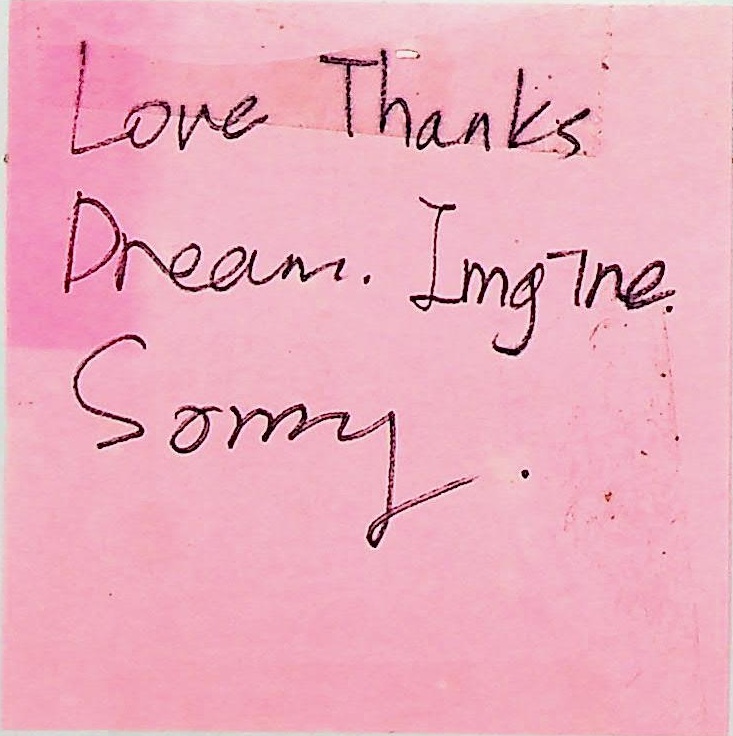 Love Thanks
Dream. Imgine.
Sorry.